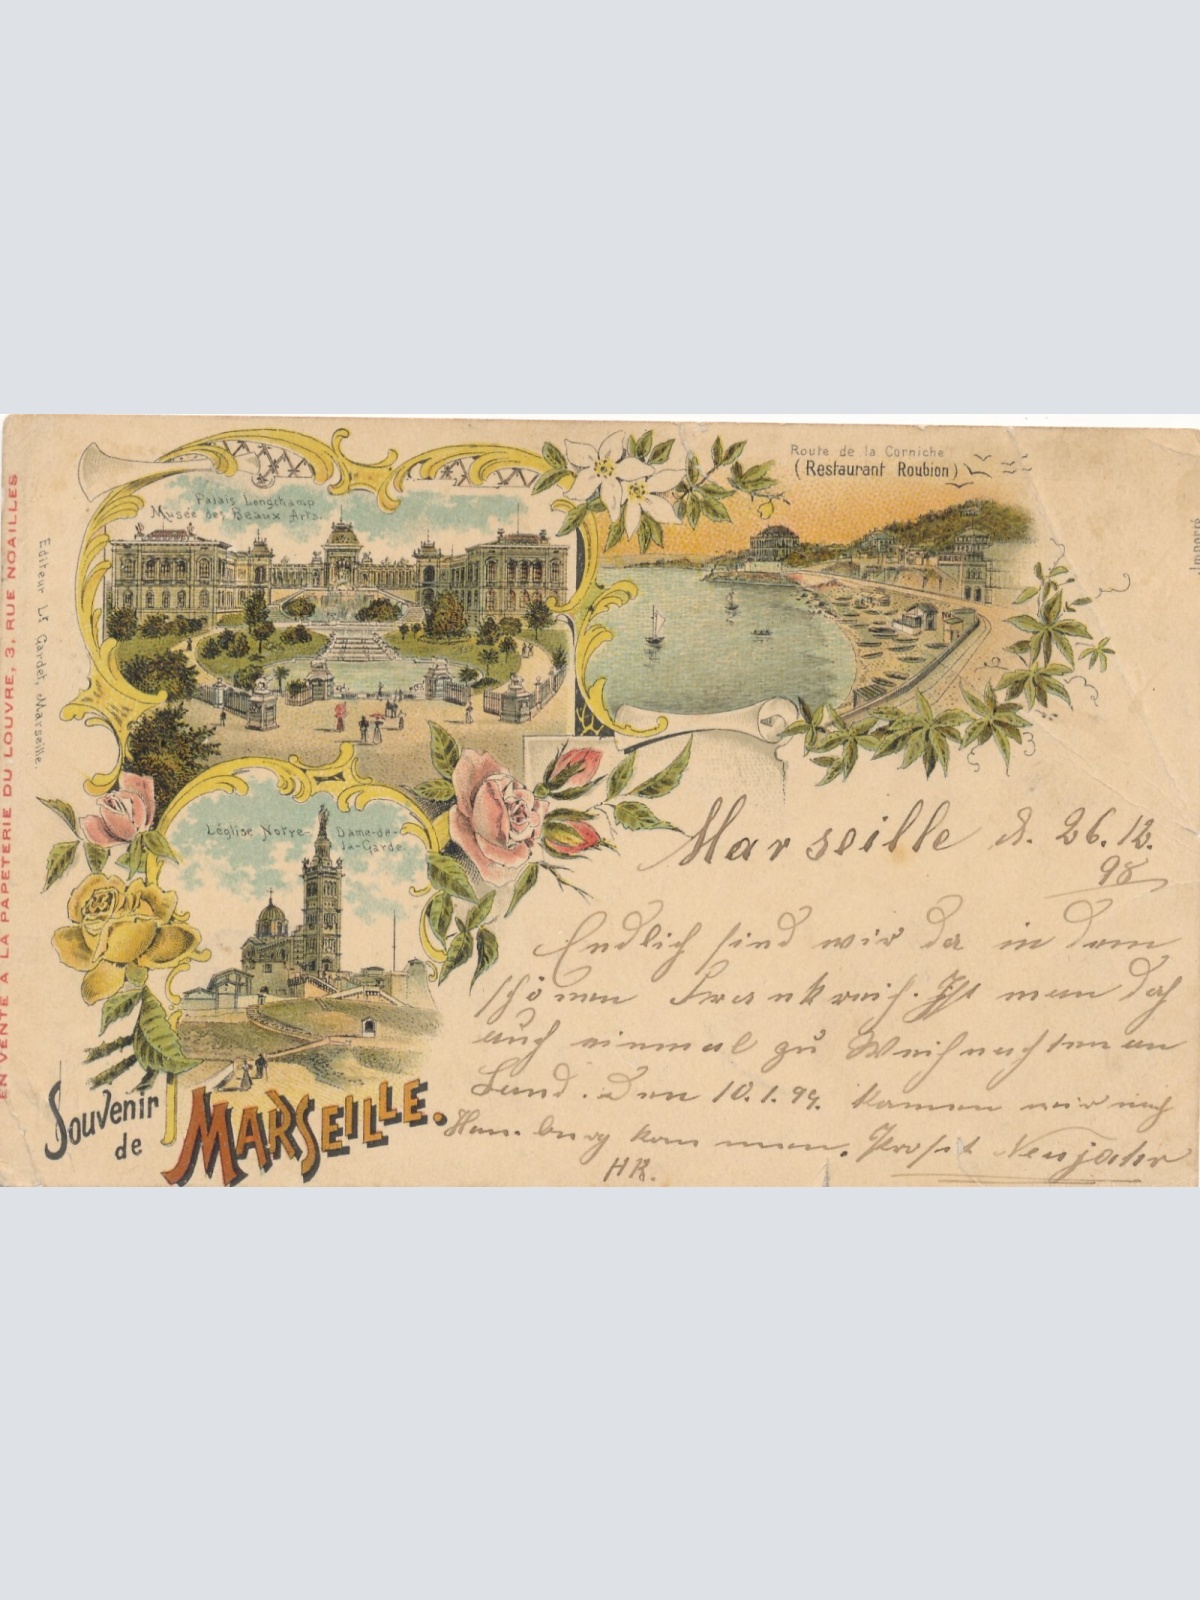 EN VENTE A LA PAPETERIE DU LOUVRE, 3, RUE NOAILLES
Editeur Lˢ Gardet, Marseille.
Palais Longchamp
Musée des Beaux Arts.
Route de la Corniche
(Restaurant Roubion)
L'église Notre-Dame-de-
la-Garde
Souvenir
de
MARSEILLE.
Marseille d. 26.12.
98
Endlich sind wir da in dem
schönen Frankreich. Ist man doch
auch einmal zu Weihnachten an
Land. Den 10.1.99. kommen wir nach
Hamburg. Prosit Neujahr
HR.